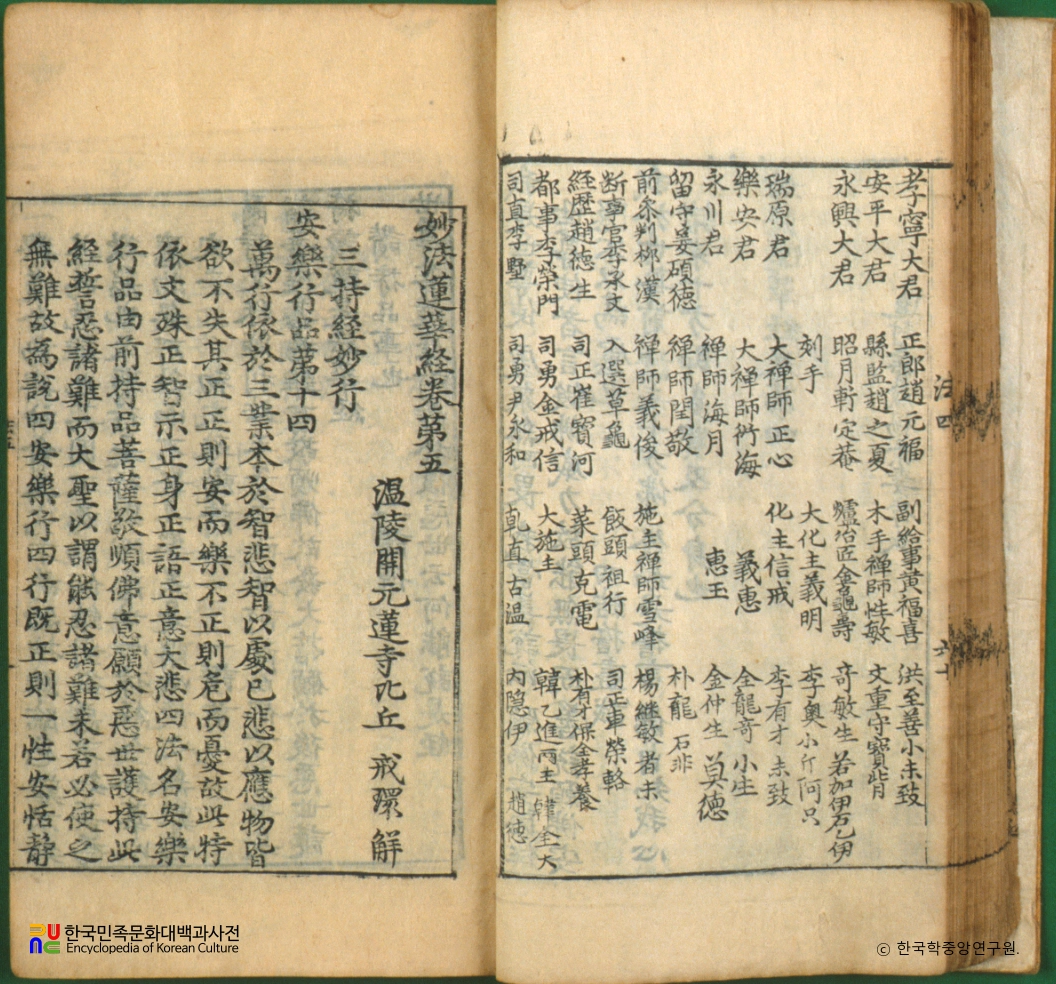 孝寧大君 正郎趙元福 副給事黃福喜 洪至善 小未致
安平大君 縣監趙之夏 木手禪師性敏 文重守 寶背
永興大君 昭月軒定菴 爐冶匠金龜壽 奇敏生 若加伊 伊
刻手 大化主義明 李奧 小斤阿只
瑞原君 大禅師正心 化主信戒 李有才 未致
樂安君 大禅師衍海 義惠 全龍奇 小生
永川君 禅師海月 惠玉 金仲生 莫德
留守晏碩德 禅師閏敬 朴龍 石非
前叅判柳漢 禅師義俊 施主禅師雪峰 楊継敏 者未
断事官李承文 入選草龜 飯頭祖行 司正車榮輅
経歷趙德生 司正崔寶河 菜頭克電 朴有才 保金孝養
都事李榮門 司勇金戒信 大施主 韓乙進 丙主 韓全大
司直李墅 司勇尹永和 乹直古温 内隠伊 趙德
法四
六十
妙法蓮華経卷第五
温陵開元蓮寺比丘 戒環 解
三持経妙行
安樂行品第十四
萬行依於三業本於智悲智以處已悲以應物皆
欲不失其正正則安而樂不正則危而憂故此特
依文殊正智示正身正語正意大悲四法名安樂
行品由前持品菩薩敬順佛意願於惡世護持此
経誓忍諸難而大聖以謂能忍諸難未若必使之
無難故為說四安樂行四行既正則一性安恬静
한국민족문화대백과사전
Encyclopedia of Korean Culture
ⓒ 한국학중앙연구원.